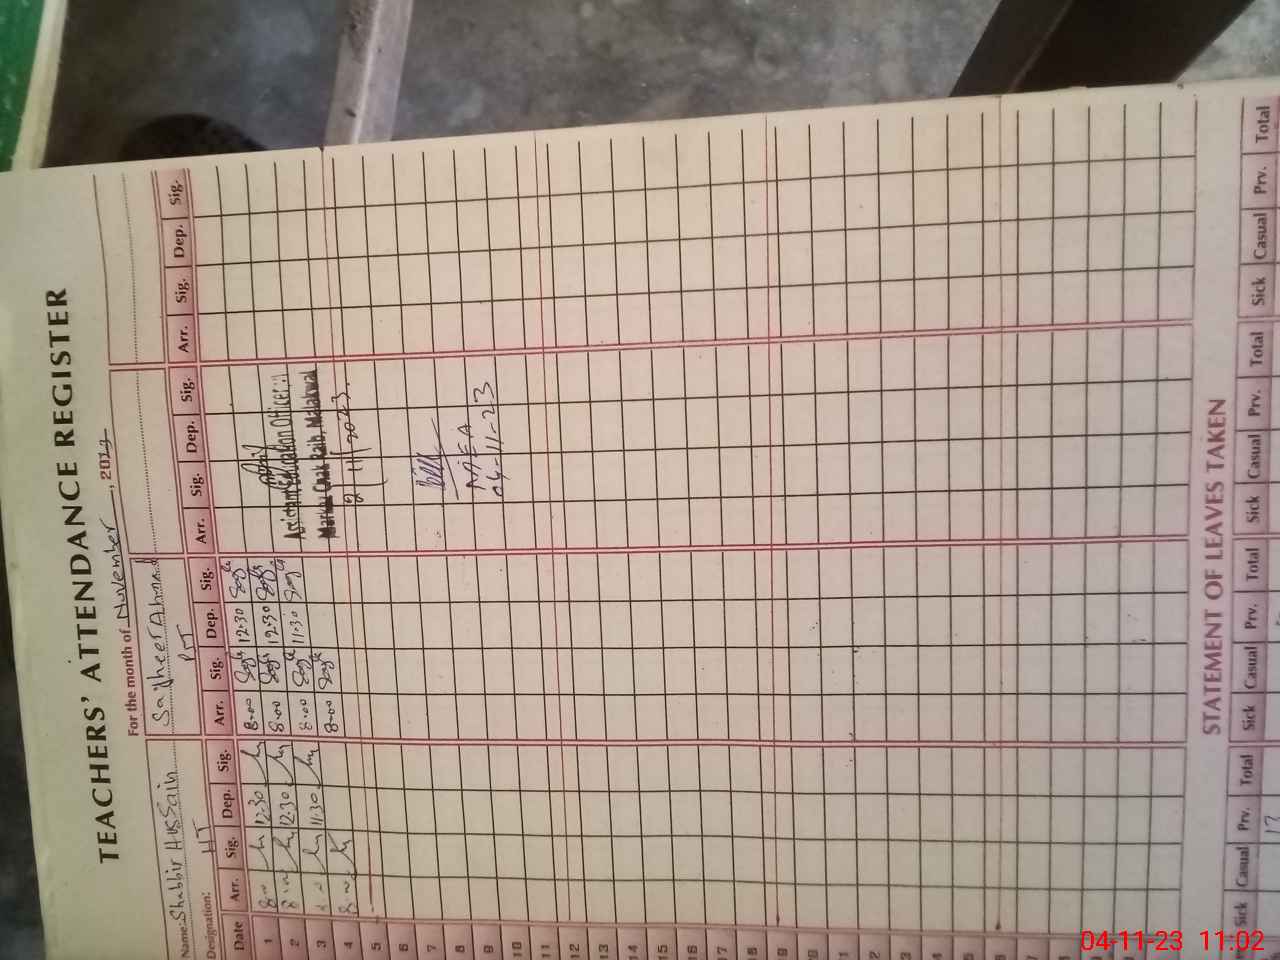 TEACHERS' ATTENDANCE REGISTER
For the month of November, 2023
Name: Shabbir Hussain
Sagheer Ahmad
Designation: HT
PST
Date Arr. Sig. Dep. Sig. Arr. Sig. Dep. Sig. Arr. Sig. Dep. Sig. Arr. Sig. Dep. Sig.
1 8:00 12:30 8:00 12:30
2 8:00 12:30 8:00 12:30
Assistant Education Officer
3 11:30 8:00 11:30
Markaz Chak Raib, Malakwal
4 8:00 8:00
2/11/2023
5
6
7
8
MEA
9
04-11-23
10
11
12
13
14
15
16
17
18
19
STATEMENT OF LEAVES TAKEN
Sick Casual Prv. Total Sick Casual Prv. Total Sick Casual Prv. Total Sick Casual Prv. Total
04-11-23 11:02